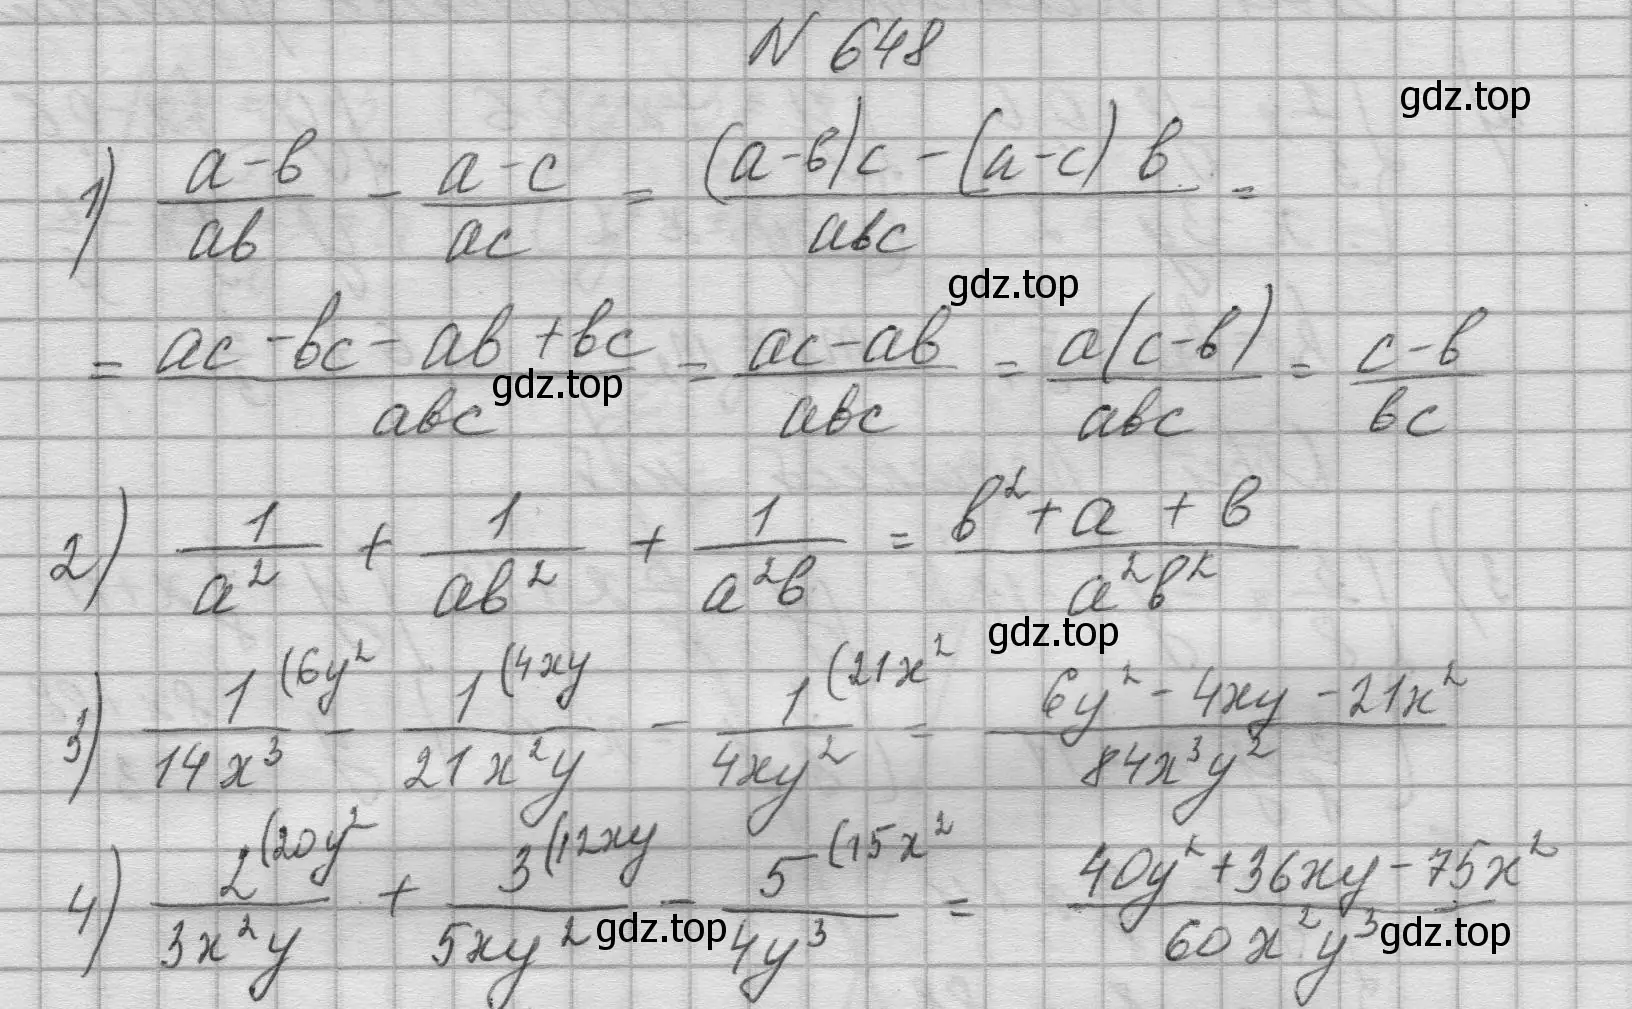 N 648
gdz.top
1) (a-b)/(ab) - (a-c)/(ac) = ((a-b)c - (a-c)b)/(abc) =
gdz.top
= (ac - bc - ab + bc)/(abc) = (ac - ab)/(abc) = (a(c-b))/(abc) = (c-b)/(bc)
gdz.top
2) 1/a² + 1/(ab²) + 1/(a²b) = (b² + a + b)/(a²b²)
gdz.top
3) 1(6y²/(14x³) - 1(4xy/(21x²y) - 1(21x²/(4xy²) = (6y² - 4xy - 21x²)/(84x³y²)
4) 2(20y²/(3x²y) + 3(12xy/(5xy²) - 5(15x²/(4y³) = (40y² + 36xy - 75x²)/(60x²y³)
gdz.top
gdz.top